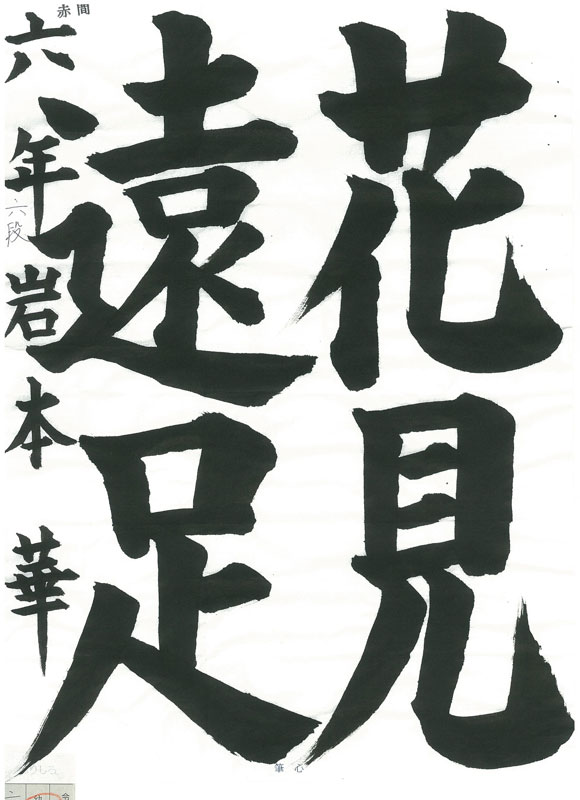 花見
遠足
六年 岩本 華
六段
赤間
筆心